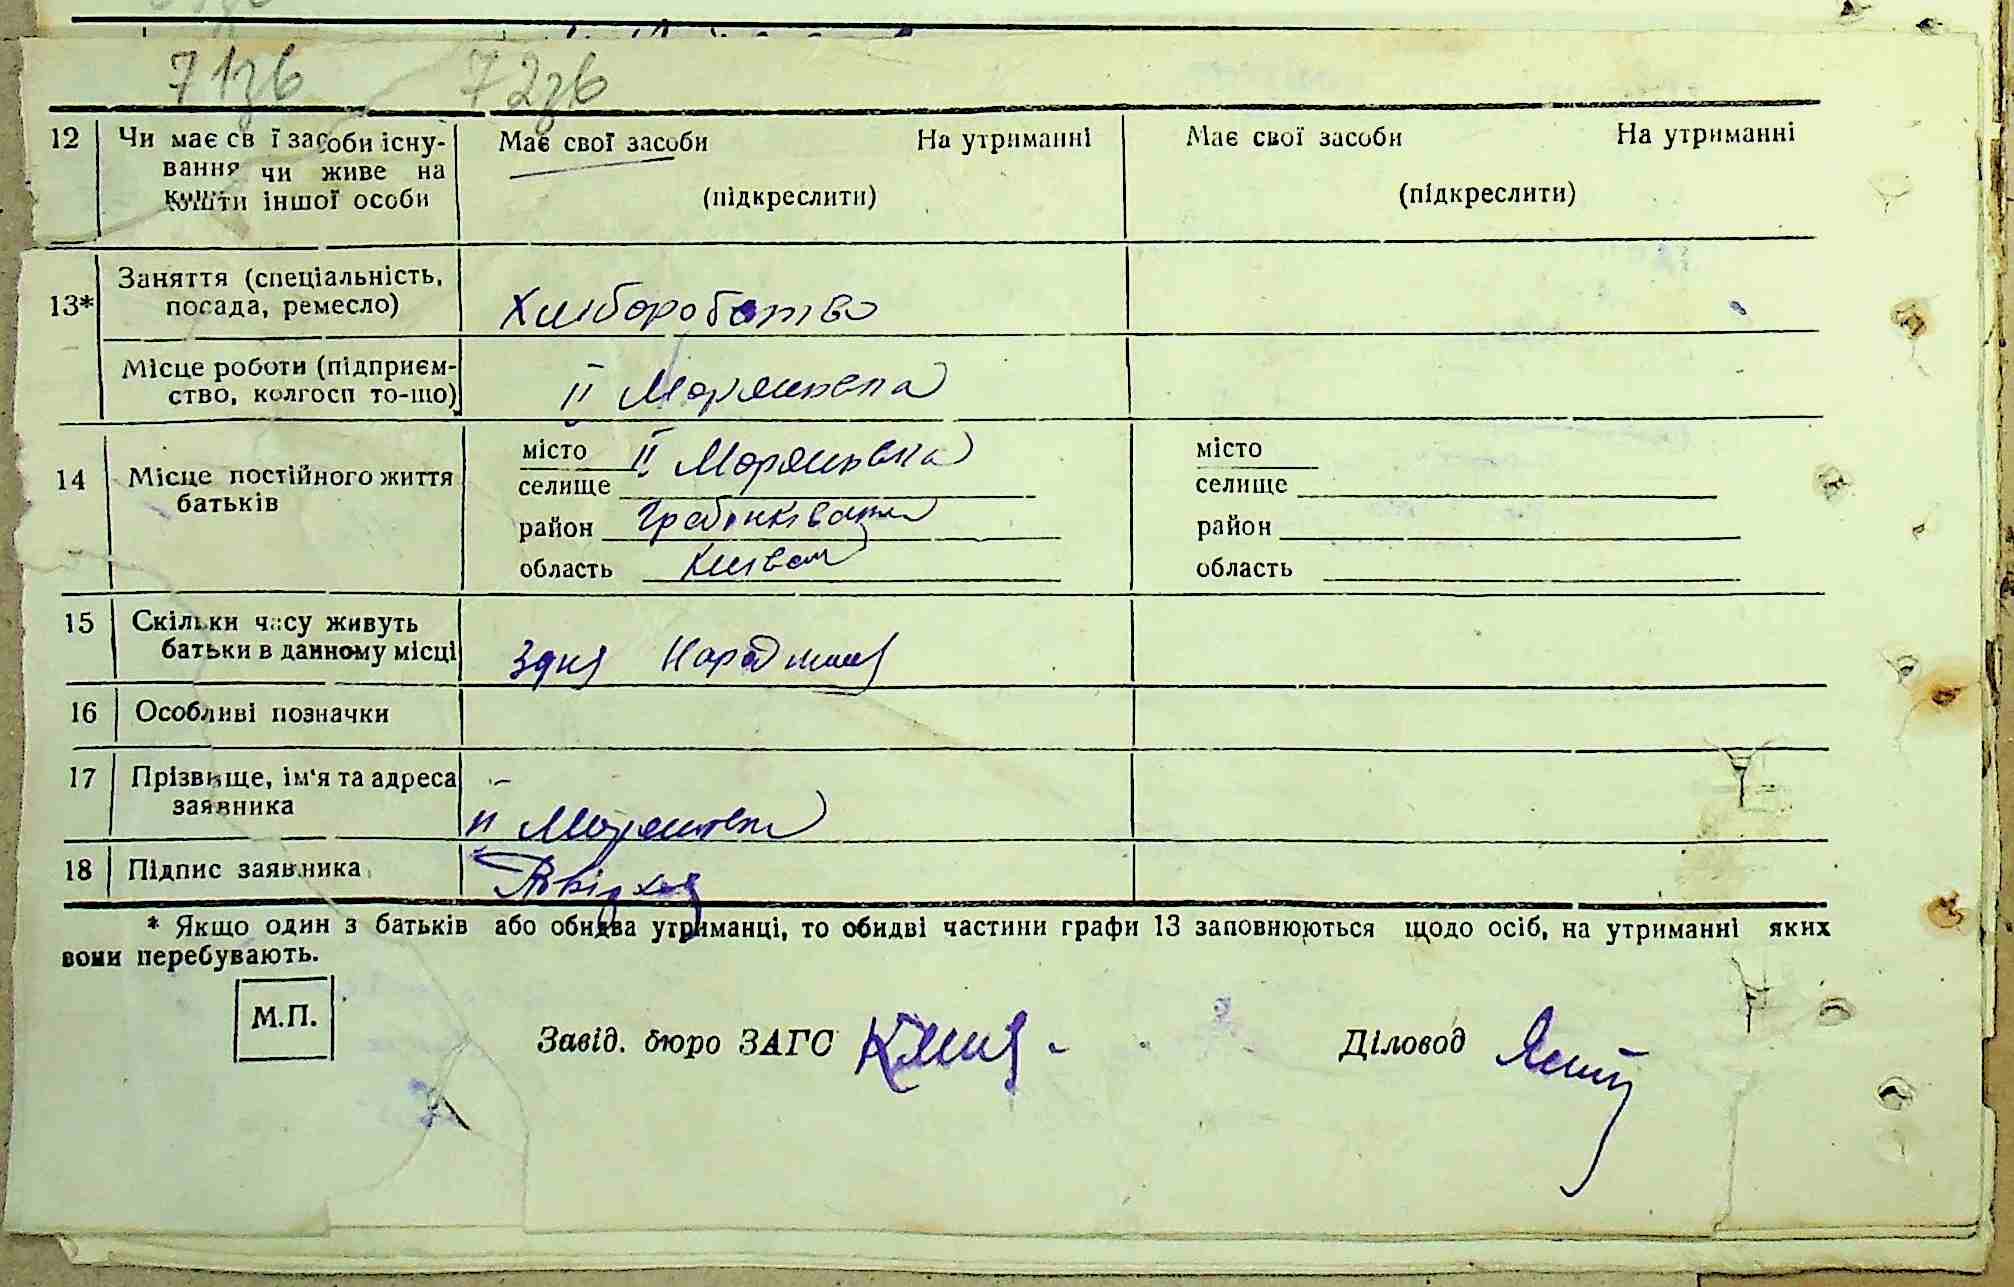 71зв 72зв
12 Чи має св ї засоби існу- Має свої засоби На утриманні Має свої засоби На утриманні
вання чи живе на
кошти іншої особи (підкреслити) (підкреслити)
Заняття (спеціальність,
13* посада, ремесло) Хліборобство
Місце роботи (підприєм-
ство, колгосп то-що) II Мор
14 Місце постійного життя
батьків
місто II
селище
район Гребінківський
область Київськ
місто
селище
район
область
15 Скільки часу живуть
батьки в данному місці З дня народження
16 Особливі позначки
17 Прізвище, ім'я та адреса
заявника II
18 Підпис заявника
* Якщо один з батьків або обидва утриманці, то обидві частини графи 13 заповнюються щодо осіб, на утриманні яких
вони перебувають.
М.П.
Завід. бюро ЗАГС Діловод